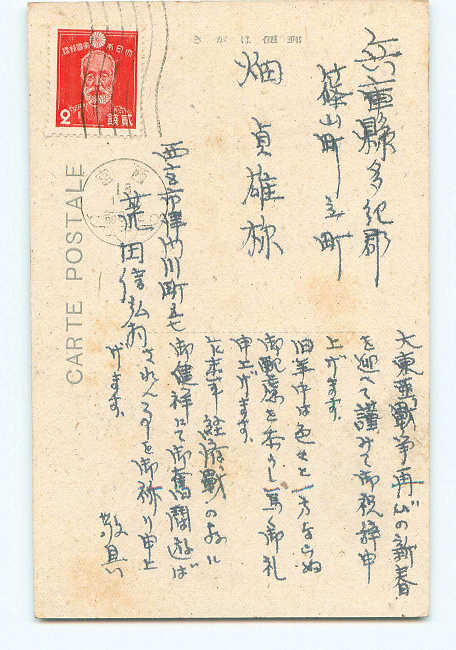 兵庫縣多紀郡
篠山町立町
畑 貞雄様
西宮市津門川町五七
荒田信弘
大東亜戰争再びの新春
を迎へて謹みて御祝辞申
上げます
旧年中は色々と一方ならぬ
御配慮を
申上げます
経済戰の為に
御健祥にて御奮闘遊ば
されん事を御祈り申上
げます。
敬具
大日本帝國郵便
2 貳錢
きがは便郵
CARTE POSTALE